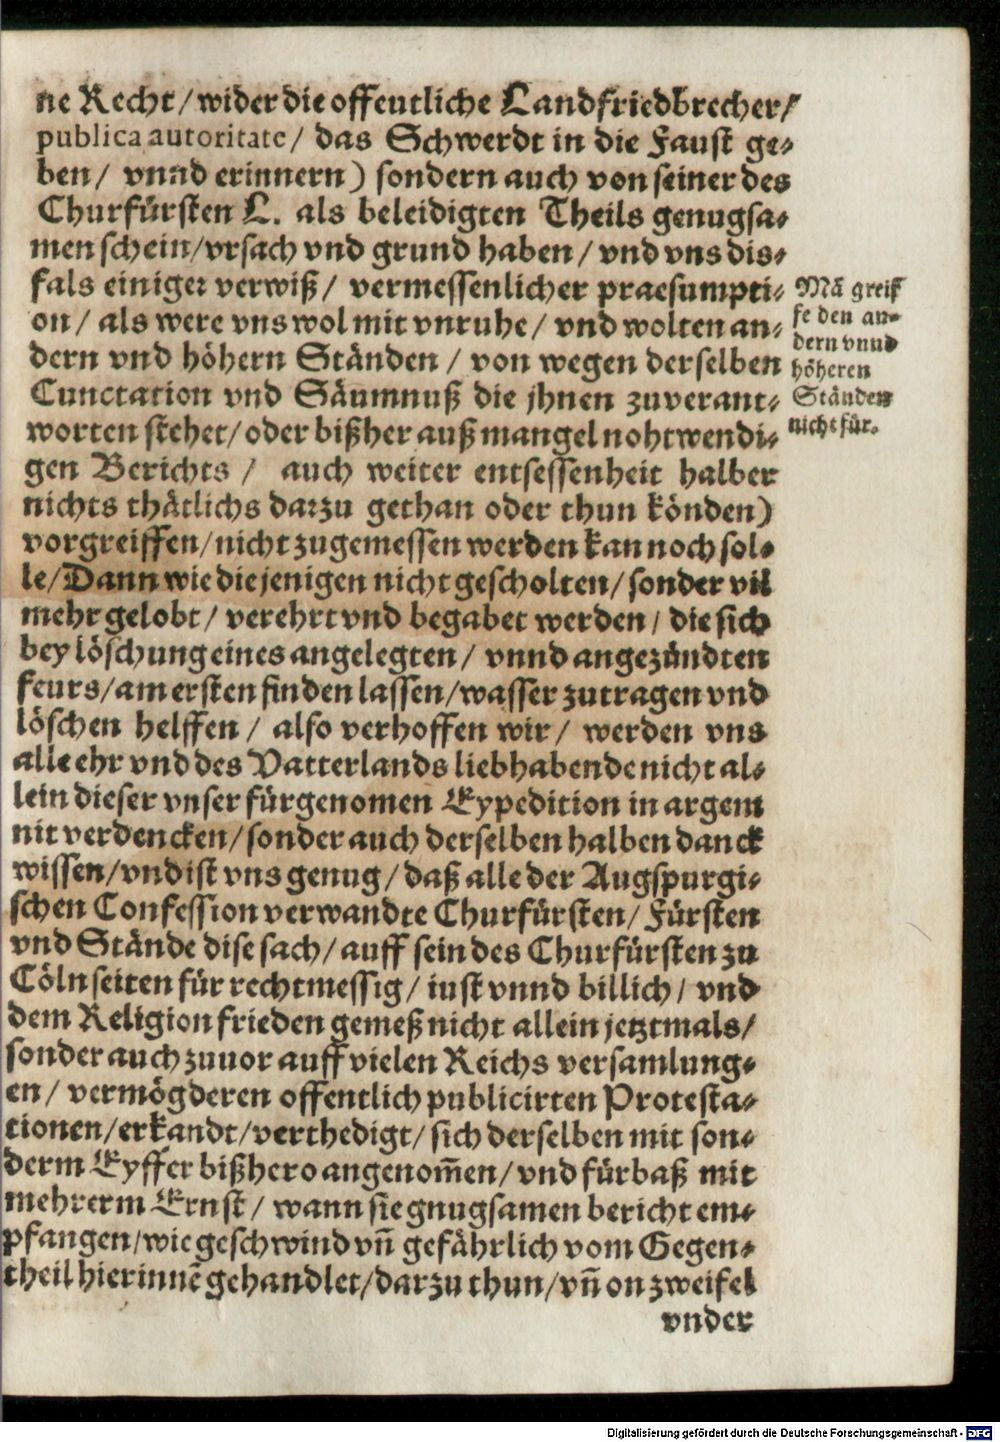 ne Recht/ wider die offentliche Landfriedbrecher/
publica autoritate/ das Schwerdt in die Faust ge-
ben/ vnnd erinnern) sondern auch von seiner des
Churfürsten L. als beleidigten Theils genugsa-
men schein/ vrsach vnd grund haben/ vnd vns dis-
fals einiger verwiß/ vermessenlicher praesumpti-
on/ als were vns wol mit vnruhe/ vnd wolten an-
dern vnd höhern Ständen/ von wegen derselben
Cunctation vnd Säumnuß die jhnen zuverant-
worten stehet/ oder bißher auß mangel nohtwendi-
gen Berichts/ auch weiter entsessenheit halber
nichts thätlichs darzu gethan oder thun könden)
vorgreiffen/ nicht zugemessen werden kan noch sol-
le/ Dann wie diejenigen nicht gescholten/ sonder vil
mehr gelobt/ verehrt vnd begabet werden/ die sich
bey löschung eines angelegten/ vnnd angezündten
feurs/ am ersten finden lassen/ wasser zutragen vnd
löschen helffen/ also verhoffen wir/ werden vns
alle ehr vnd des Vatterlands liebhabende nicht al-
lein dieser vnser fürgenomen Expedition in argem
nit verdencken/ sonder auch derselben halben danck
wissen/ vnd ist vns genug/ daß alle der Augspurgi-
schen Confession verwandte Churfürsten/ Fürsten
vnd Stände dise sach/ auff sein des Churfürsten zu
Cöln seiten für rechtmessig/ iust vnnd billich/ vnd
dem Religion frieden gemeß nicht allein jetztmals/
sonder auch zuuor auff vielen Reichs versamlung-
en/ vermög deren offentlich publicirten Protesta-
tionen/ erkandt/ verthedigt/ sich derselben mit son-
derm Eyffer bißhero angenom̃en/ vnd fürbaß mit
mehrerm Ernst/ wann sie gnugsamen bericht em-
pfangen/ wie geschwind vñ gefährlich vom Gegen-
theil hierinnẽ gehandlet/ darzu thun/ vñ on zweifel
vnder
Mã greif
fe den an-
dern vnnd
höheren
Ständen
nicht für.
Digitalisierung gefördert durch die Deutsche Forschungsgemeinschaft - DFG